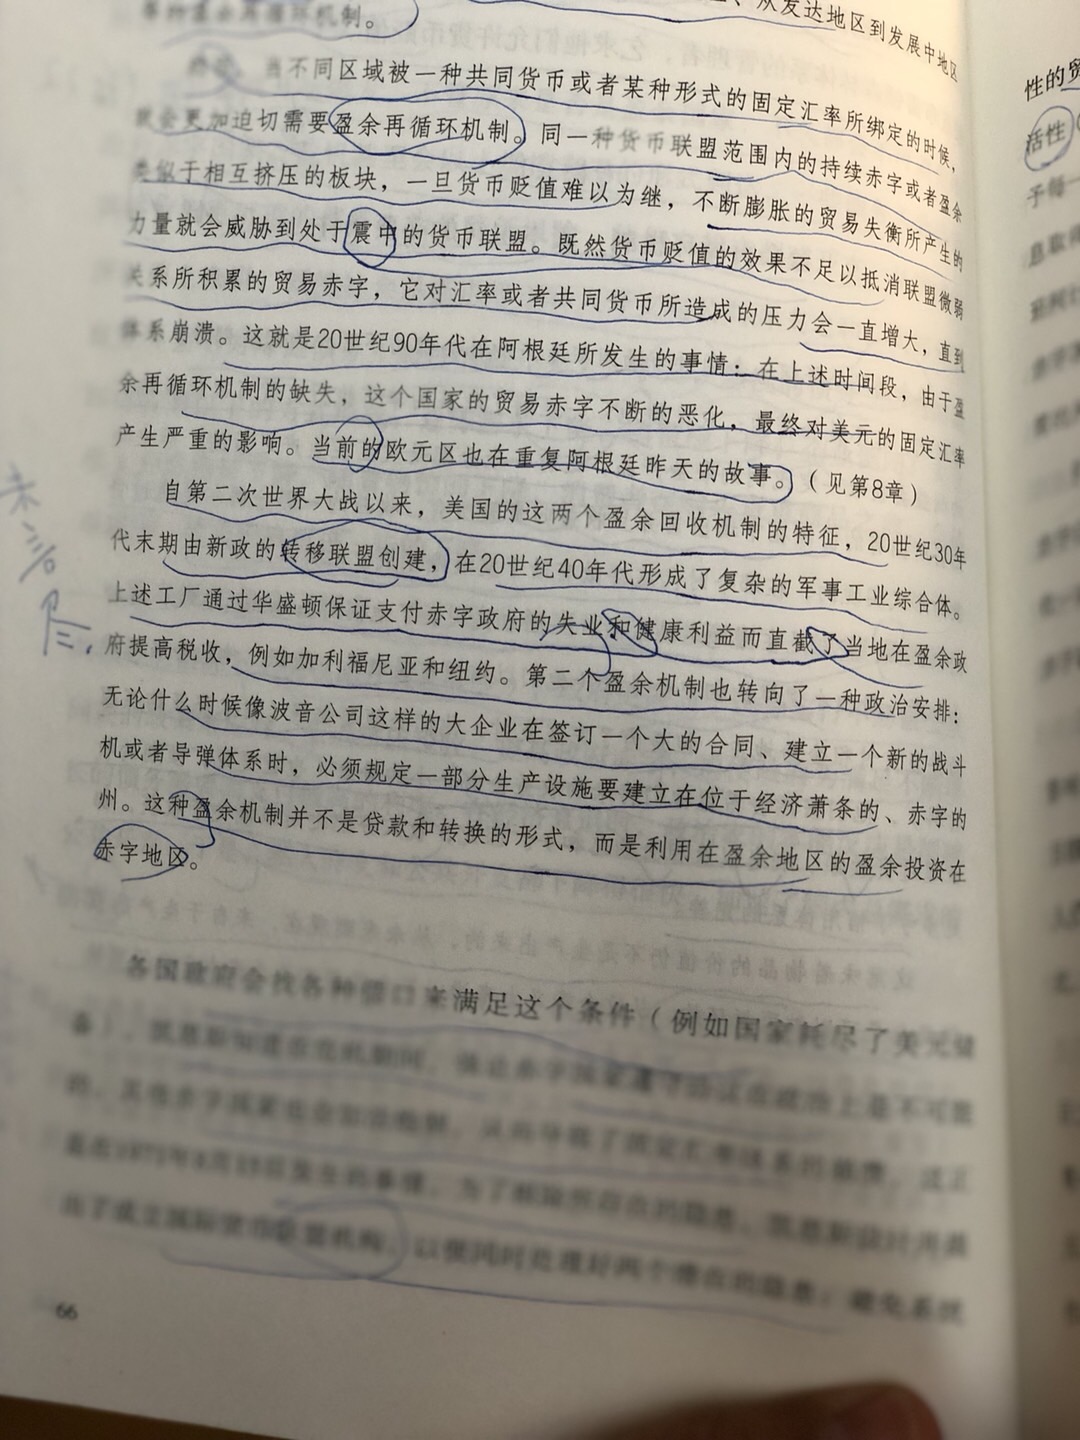 等种盈余再循环机制。
从发达地区到发展中地区
当不同区域被一种共同货币或者某种形式的固定汇率所绑定的时候，
就会更加迫切需要盈余再循环机制。同一种货币联盟范围内的持续赤字或者盈余
类似于相互挤压的板块，一旦货币贬值难以为继，不断膨胀的贸易失衡所产生的
力量就会威胁到处于震中的货币联盟。既然货币贬值的效果不足以抵消联盟微弱
关系所积累的贸易赤字，它对汇率或者共同货币所造成的压力会一直增大，直到
体系崩溃。这就是20世纪90年代在阿根廷所发生的事情：在上述时间段，由于盈
余再循环机制的缺失，这个国家的贸易赤字不断的恶化，最终对美元的固定汇率
产生严重的影响。当前的欧元区也在重复阿根廷昨天的故事。（见第8章）
自第二次世界大战以来，美国的这两个盈余回收机制的特征，20世纪30年
代末期由新政的转移联盟创建，在20世纪40年代形成了复杂的军事工业综合体。
上述工厂通过华盛顿保证支付赤字政府的失业和健康利益而直截了当地在盈余政
府提高税收，例如加利福尼亚和纽约。第二个盈余机制也转向了一种政治安排：
无论什么时候像波音公司这样的大企业在签订一个大的合同、建立一个新的战斗
机或者导弹体系时，必须规定一部分生产设施要建立在位于经济萧条的、赤字的
州。这种盈余机制并不是贷款和转换的形式，而是利用在盈余地区的盈余投资在
赤字地区。
各国政府会找各种借口来满足这个条件（例如国家耗尽了美元储
备），凯恩斯知道在危机期间，
是在1971年8月15日发生的事情，为了
出了成立国际货币联盟机构，以便同时处理好两个潜在的隐患：避免系统
66
性的贸
活性
子每一
息取得